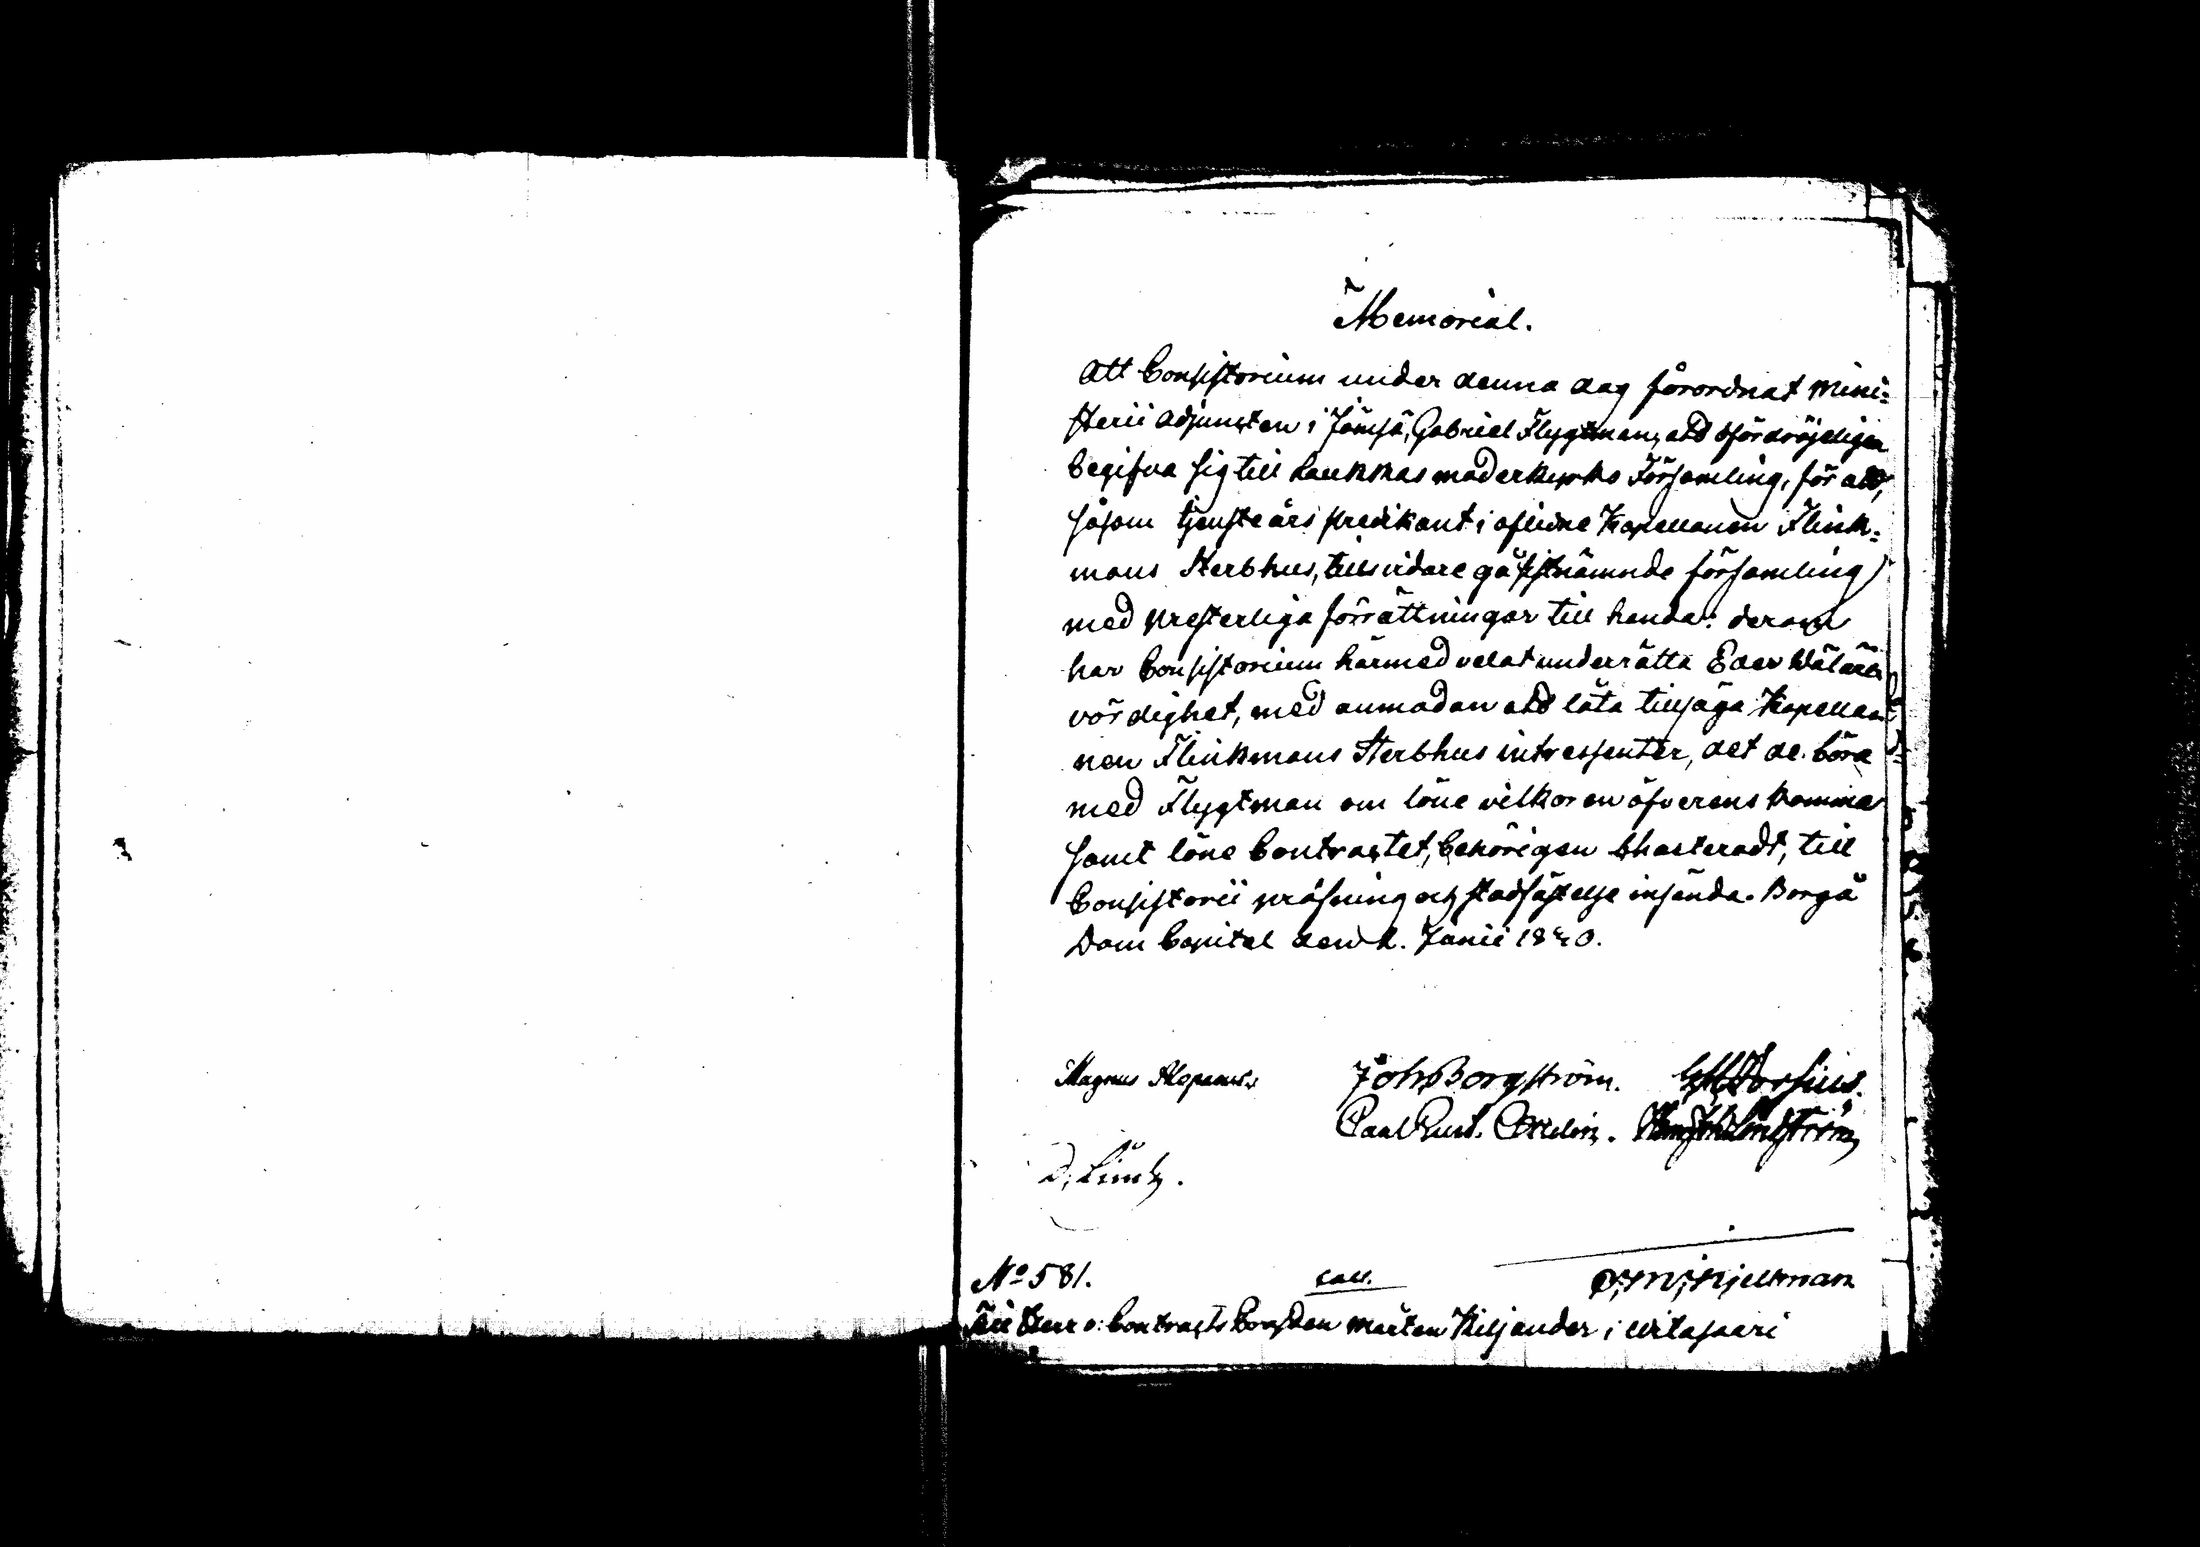 Memorial.
Att Consistorium under denna dag förordnat Mini-
sterii Adjuncten i Jämsä, Gabriel Flygtman, att ofördröjeligen
begifva sig till Laukkas moderkyrko Församling, för att,
såsom tjensteårs predikant i aflidne Kapellanen Flink-
mans Sterbhus, tillsvidare gå sistnämnde församling
med presterliga förrättningar till handa: derom
har Consistorium härmed velat underrätta Eder Wälär-
vördighet, med anmodan att låta tillsäga Kapella-
nen Flinkmans Sterbhus intressenter, det de böra
med Flygtman om löne vilkoren öfverens komma
samt löne Contractet, behörigen charteradt, till
Consistorii pröfning och stadfästelse insända. Borgå
Dom Capitel den Junii 1840.
Magnus Alopaeus. Joh. Borgström.
Paul Gust. Ordelin.
No 581.
coll.
Till Herr v. Contracts Prosten Mårten Kiljander i Witasaari